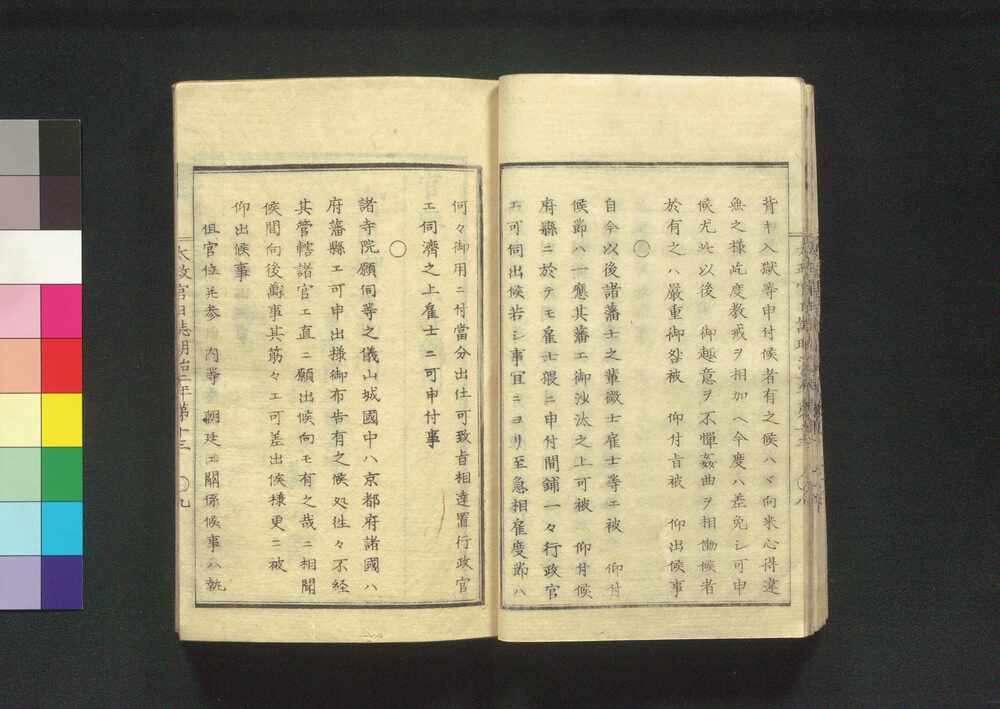 背キ入獄等申付候者有之候ハヾ向来心得違
無之様屹度教戒ヲ相加ヘ今度ハ差免シ可申
候尤此以後 御趣意ヲ不憚姦曲ヲ相働候者
於有之ハ嚴重御咎被 仰付旨被 仰出候事
○
自今以後諸藩士之輩徴士雇士等エ被 仰付
候節ハ一應其藩エ御沙汰之上可被 仰付候
府縣ニ於テモ雇士猥ニ申付間鋪一々行政官
エ可伺出候若シ事宜ニヨリ至急相雇度節ハ
何々御用ニ付當分出仕可致旨相達置行政官
エ伺濟之上雇士ニ可申付事
○
諸寺院願伺等之儀山城國中ハ京都府諸國ハ
府藩縣エ可申出様御布告有之候処往々不経
其管轄諸官エ直ニ願出候向モ有之哉ニ相聞
候間向後萬事其筋々エ可差出候様更ニ被
仰出候事
但官位並参内等 朝廷エ關係候事ハ執
太政官日誌明治二年第十三 ○九